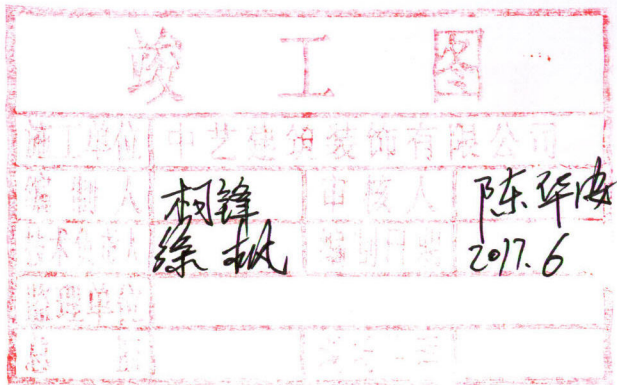 竣工图
施工单位 中艺建筑装饰有限公司
编制人 柯锋 审核人 陈华安
技术负责人 徐 编制日期 2017.6
监理单位
总监